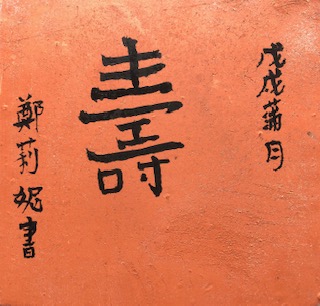 戊戌蒲月
壽
鄭莉妮書